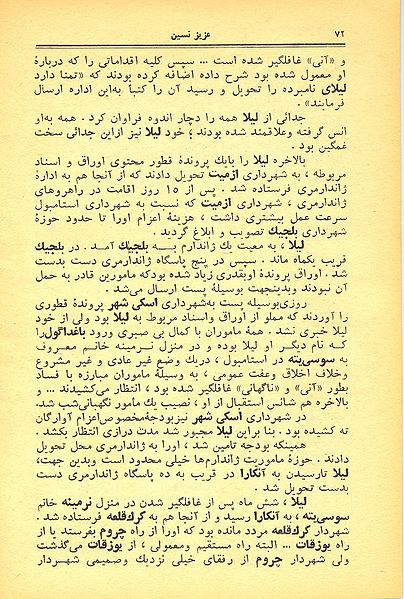 ۷۲ عزیز نسین
و «آنی» غافلگیر شده است ... سپس کلیه اقداماتی را که درباره‌ٔ
او معمول شده بود شرح داده اضافه کرده بودند که «تمنا دارد
لیلای نامبرده را تحویل و رسید آن را کتباً به‌این اداره ارسال
فرمایند» .
جدائی از لیلا همه را دچار اندوه فراوان کرد . همه به‌او
انس گرفته وعلاقمند شده بودند ؛ خود لیلا نیز ازاین جدائی سخت
غمگین بود .
بالاخره لیلا را بایك پروندهٔ قطور محتوی اوراق و اسناد
مربوطه ، به شهرداری ازمیت تحویل دادند که از آنجا هم به ادارهٔ
ژاندارمری فرستاده شد . پس از ۱۵ روز اقامت در راهروهای
ژاندارمری ، شهرداری ازمیت که نسبت به شهرداری استامبول
سرعت عمل بیشتری داشت ، هزینهٔ اعزام اورا تا حدود حوزهٔ
شهرداری بلجیك تصویب و ابلاغ گردید .
لیلا ، به معیت یك ژاندارم بـــه بلجیك آمـد . در بلجیك
قریب یکماه ماند . سپس در پنج پاسگاه ژاندارمری دست بدست
شد . اوراق پروندهٔ اوبقدری زیاد شده بودکه مامورین قادر به حمل
آن نبودند وبدینجهت بوسیلهٔ پست ارسال می‌شد .
روزی‌بوسیله پست به‌شهرداری اسکی شهر پروندهٔ قطوری
را آوردند که مملو از اوراق واسناد مربوط به لیلا بود ولی از خود
لیلا خبری نشد . همهٔ ماموران با کمال بی صبری ورود باغداگول‌را
که نام دیگر او لیلا بوده و در منزل نرمینه خانـم معـروف
به سوسی‌پته در استامبول ، دریك وضع غیر عادی و غیر مشروع
وخلاف اخلاق وعفت عمومی ، به وسیلهٔ ماموران مبارزه با فساد
بطور «آنی» و «ناگهانی» غافلگیر شده بود ، انتظار می‌کشیدند ... و
بالاخره هم شانس استقبال از او ، نصیب یك مامور نگهبانی‌شب شد.
در شهرداری اسکی شهر نیزبودجهٔ‌مخصوص‌اعزام آوارگان
ته کشیده بود . بنا براین لیلا مجبور شد مدت درازی انتظار بکشد .
همینکه بودجه تامین شد ، اورا به ژاندارمری محل تحویل
دادند . حوزهٔ ماموریت ژاندارم‌ها خیلی محدود است وبدین جهت،
لیلا تارسیدن به آنکارا در قریب به ده پاسگاه ژاندارمری دست
بدست تحویل شد .
لیلا ، شش ماه پس از غافلگیر شدن در منزل نرمینه خانم
سوسی‌پته ، به آنکارا رسید و از آنجا هم به کرك‌قلعه فرستاده شد .
شهردار کرك‌قلعه مردد مانده بود که اورا از راه چروم بفرستد یا از
راه یوزقات ... البته راه مستقیم ومعمولی ، از یوزقات می‌گذشت
ولی شهردار چروم از رفقای خیلی نزدیك وصمیمی شهـردار